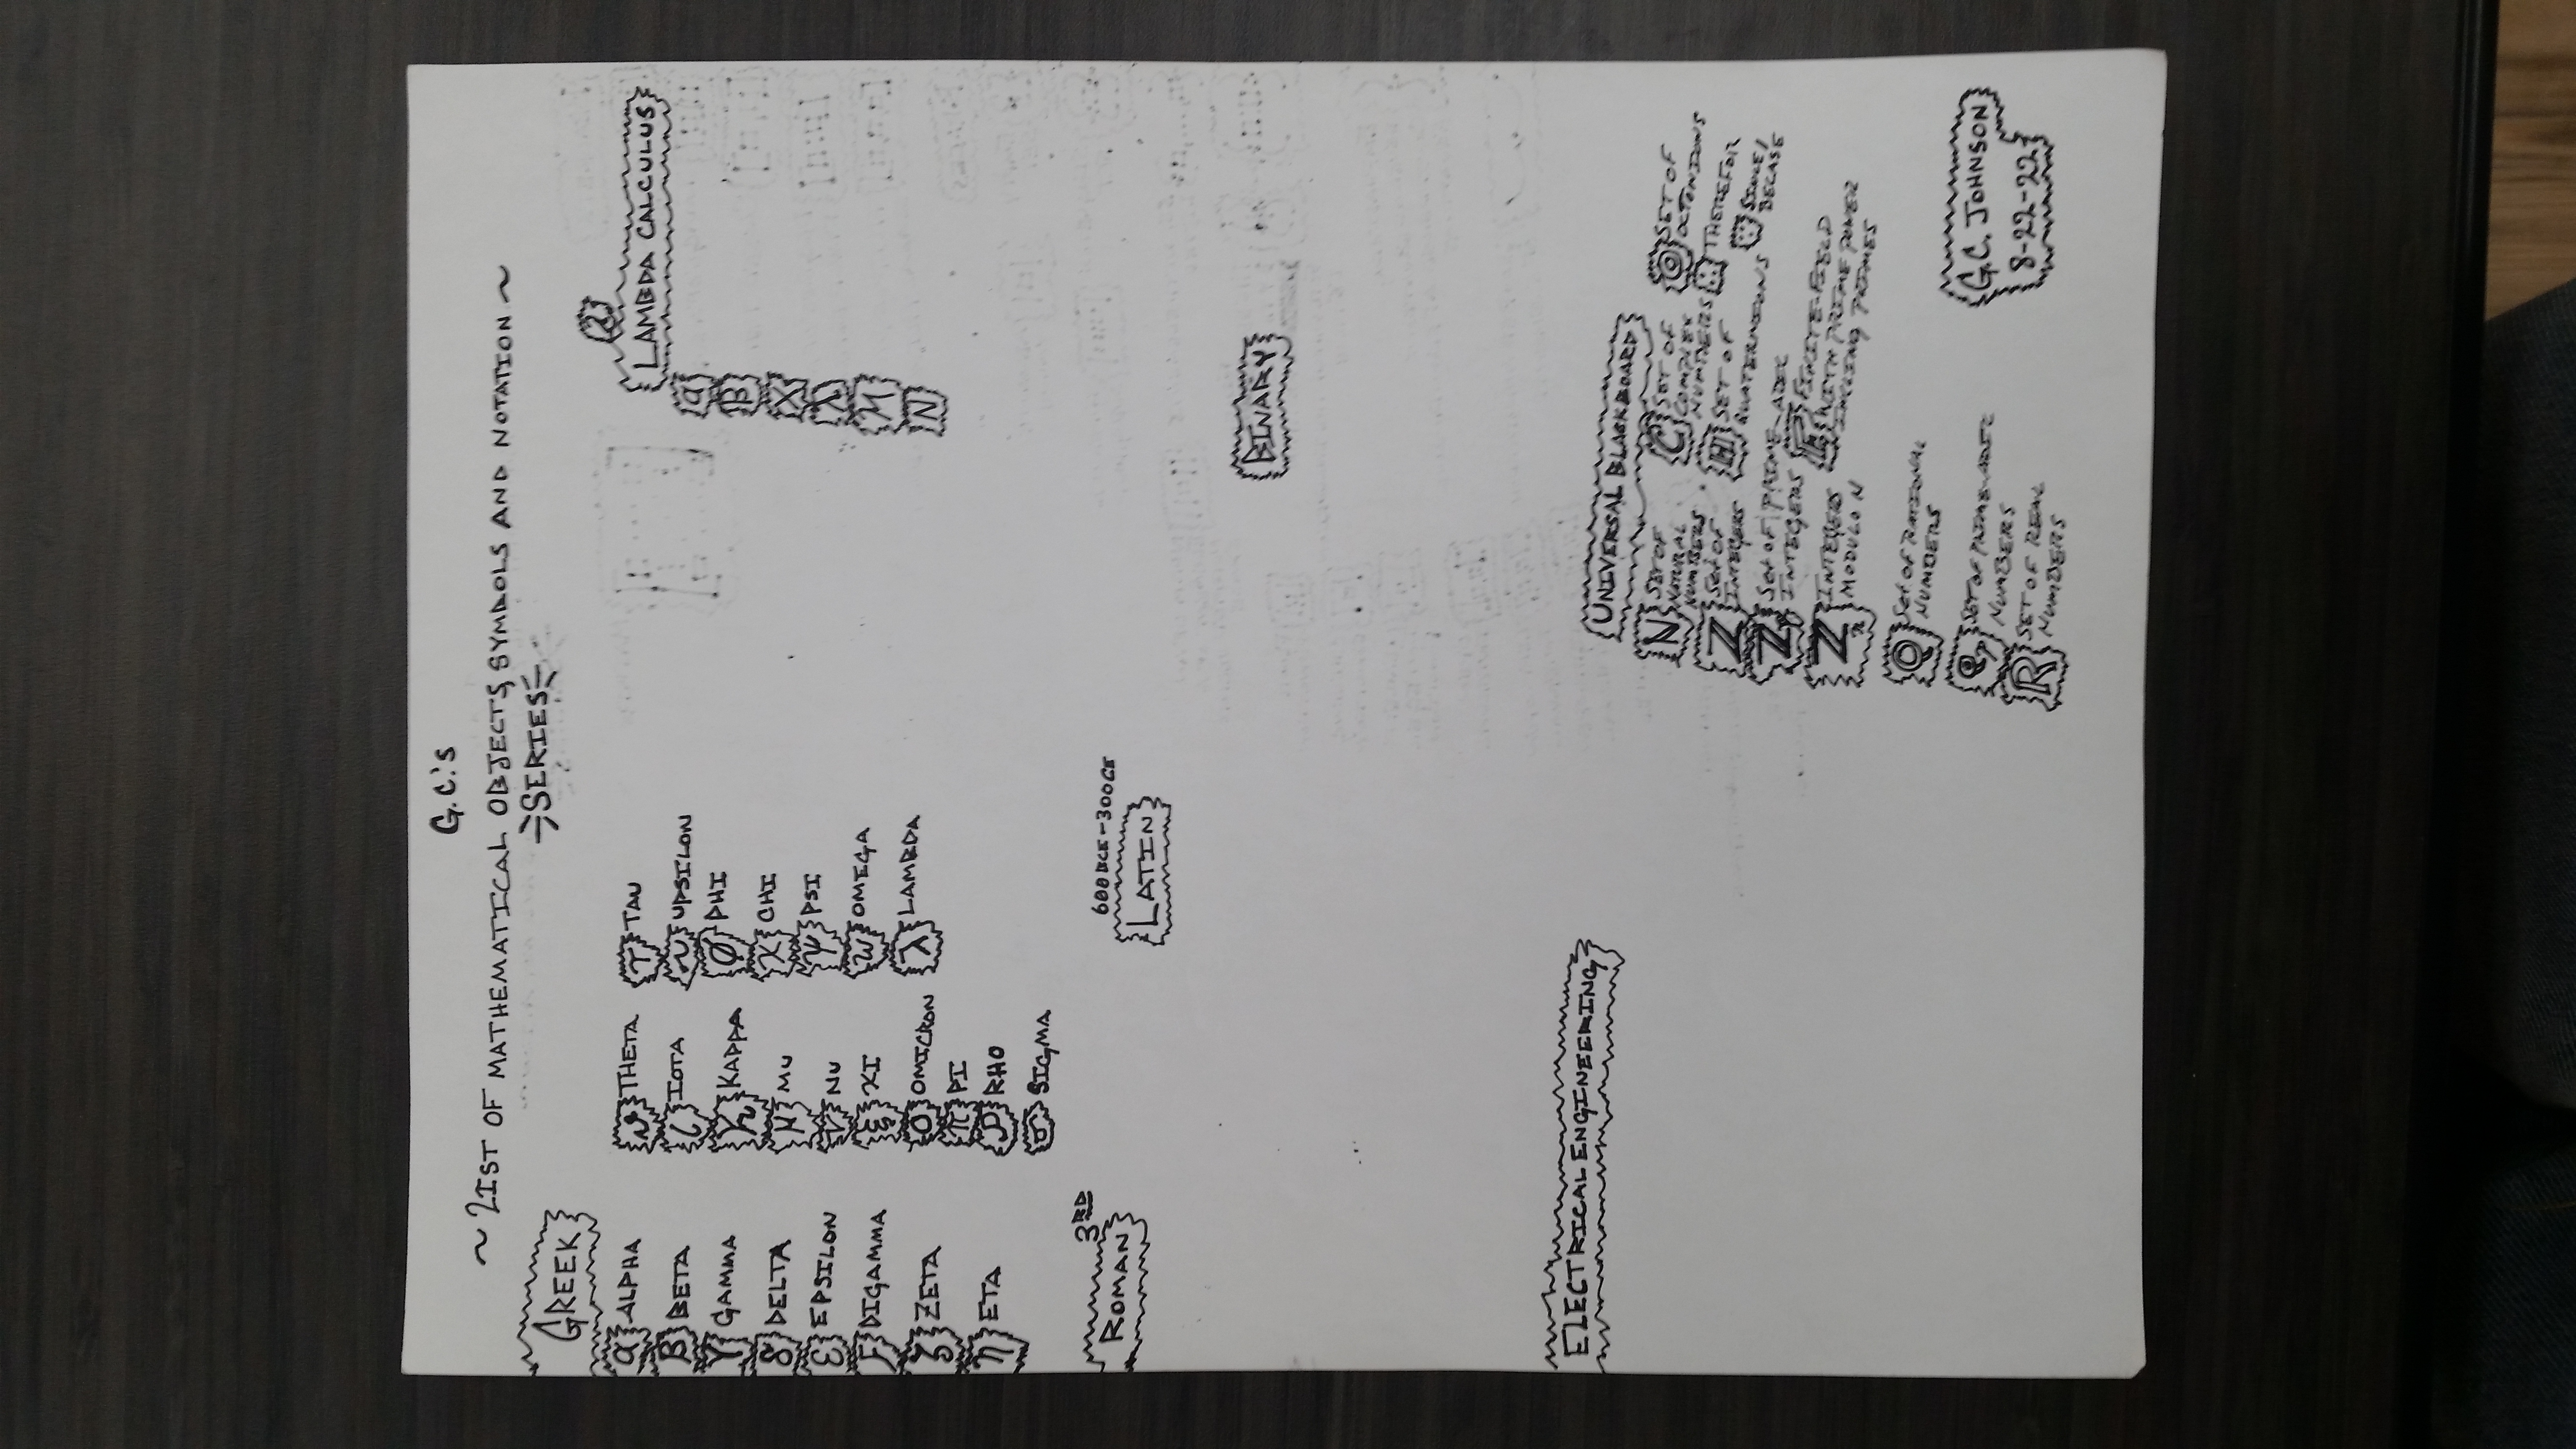 G.C.'s
~ LIST OF MATHEMATICAL OBJECTS, SYMBOLS AND NOTATION ~
SERIES
GREEK
α ALPHA
β BETA
γ GAMMA
δ DELTA
ε EPSILON
ϝ DIGAMMA
ζ ZETA
η ETA
ϑ THETA
ι IOTA
ϰ KAPPA
μ MU
ν NU
ξ XI
ο OMICRON
π PI
ρ RHO
σ SIGMA
τ TAU
υ UPSILON
ϕ PHI
χ CHI
ψ PSI
ω OMEGA
λ LAMBDA
λ
LAMBDA CALCULUS
α
β
X
λ
M
N
3RD
ROMAN
600BCE-300CE
LATIN
BINARY
ELECTRICAL ENGINEERING
UNIVERSAL BLACKBOARD
ℕ SET OF
NATURAL
NUMBERS
ℤ Set of
INTEGERS
ℤp Set of PRIME-ADIC
INTEGERS
ℤn INTEGERS
MODULO N
ℚ Set OF RATIONAL
NUMBERS
ℚp SET OF PRIME-ADIC
NUMBERS
ℝ SET OF REAL
NUMBERS
ℂ SET OF
COMPLEX
NUMBERS
ℍ SET OF
QUATERNIONS
FINITE-FIELD
WITH PRIME POWER
PRIMES
𝕆 SET OF
OCTONIONS
∴ THEREFOR
∵ SINCE/
BECASE
G.C. JOHNSON
8-22-22